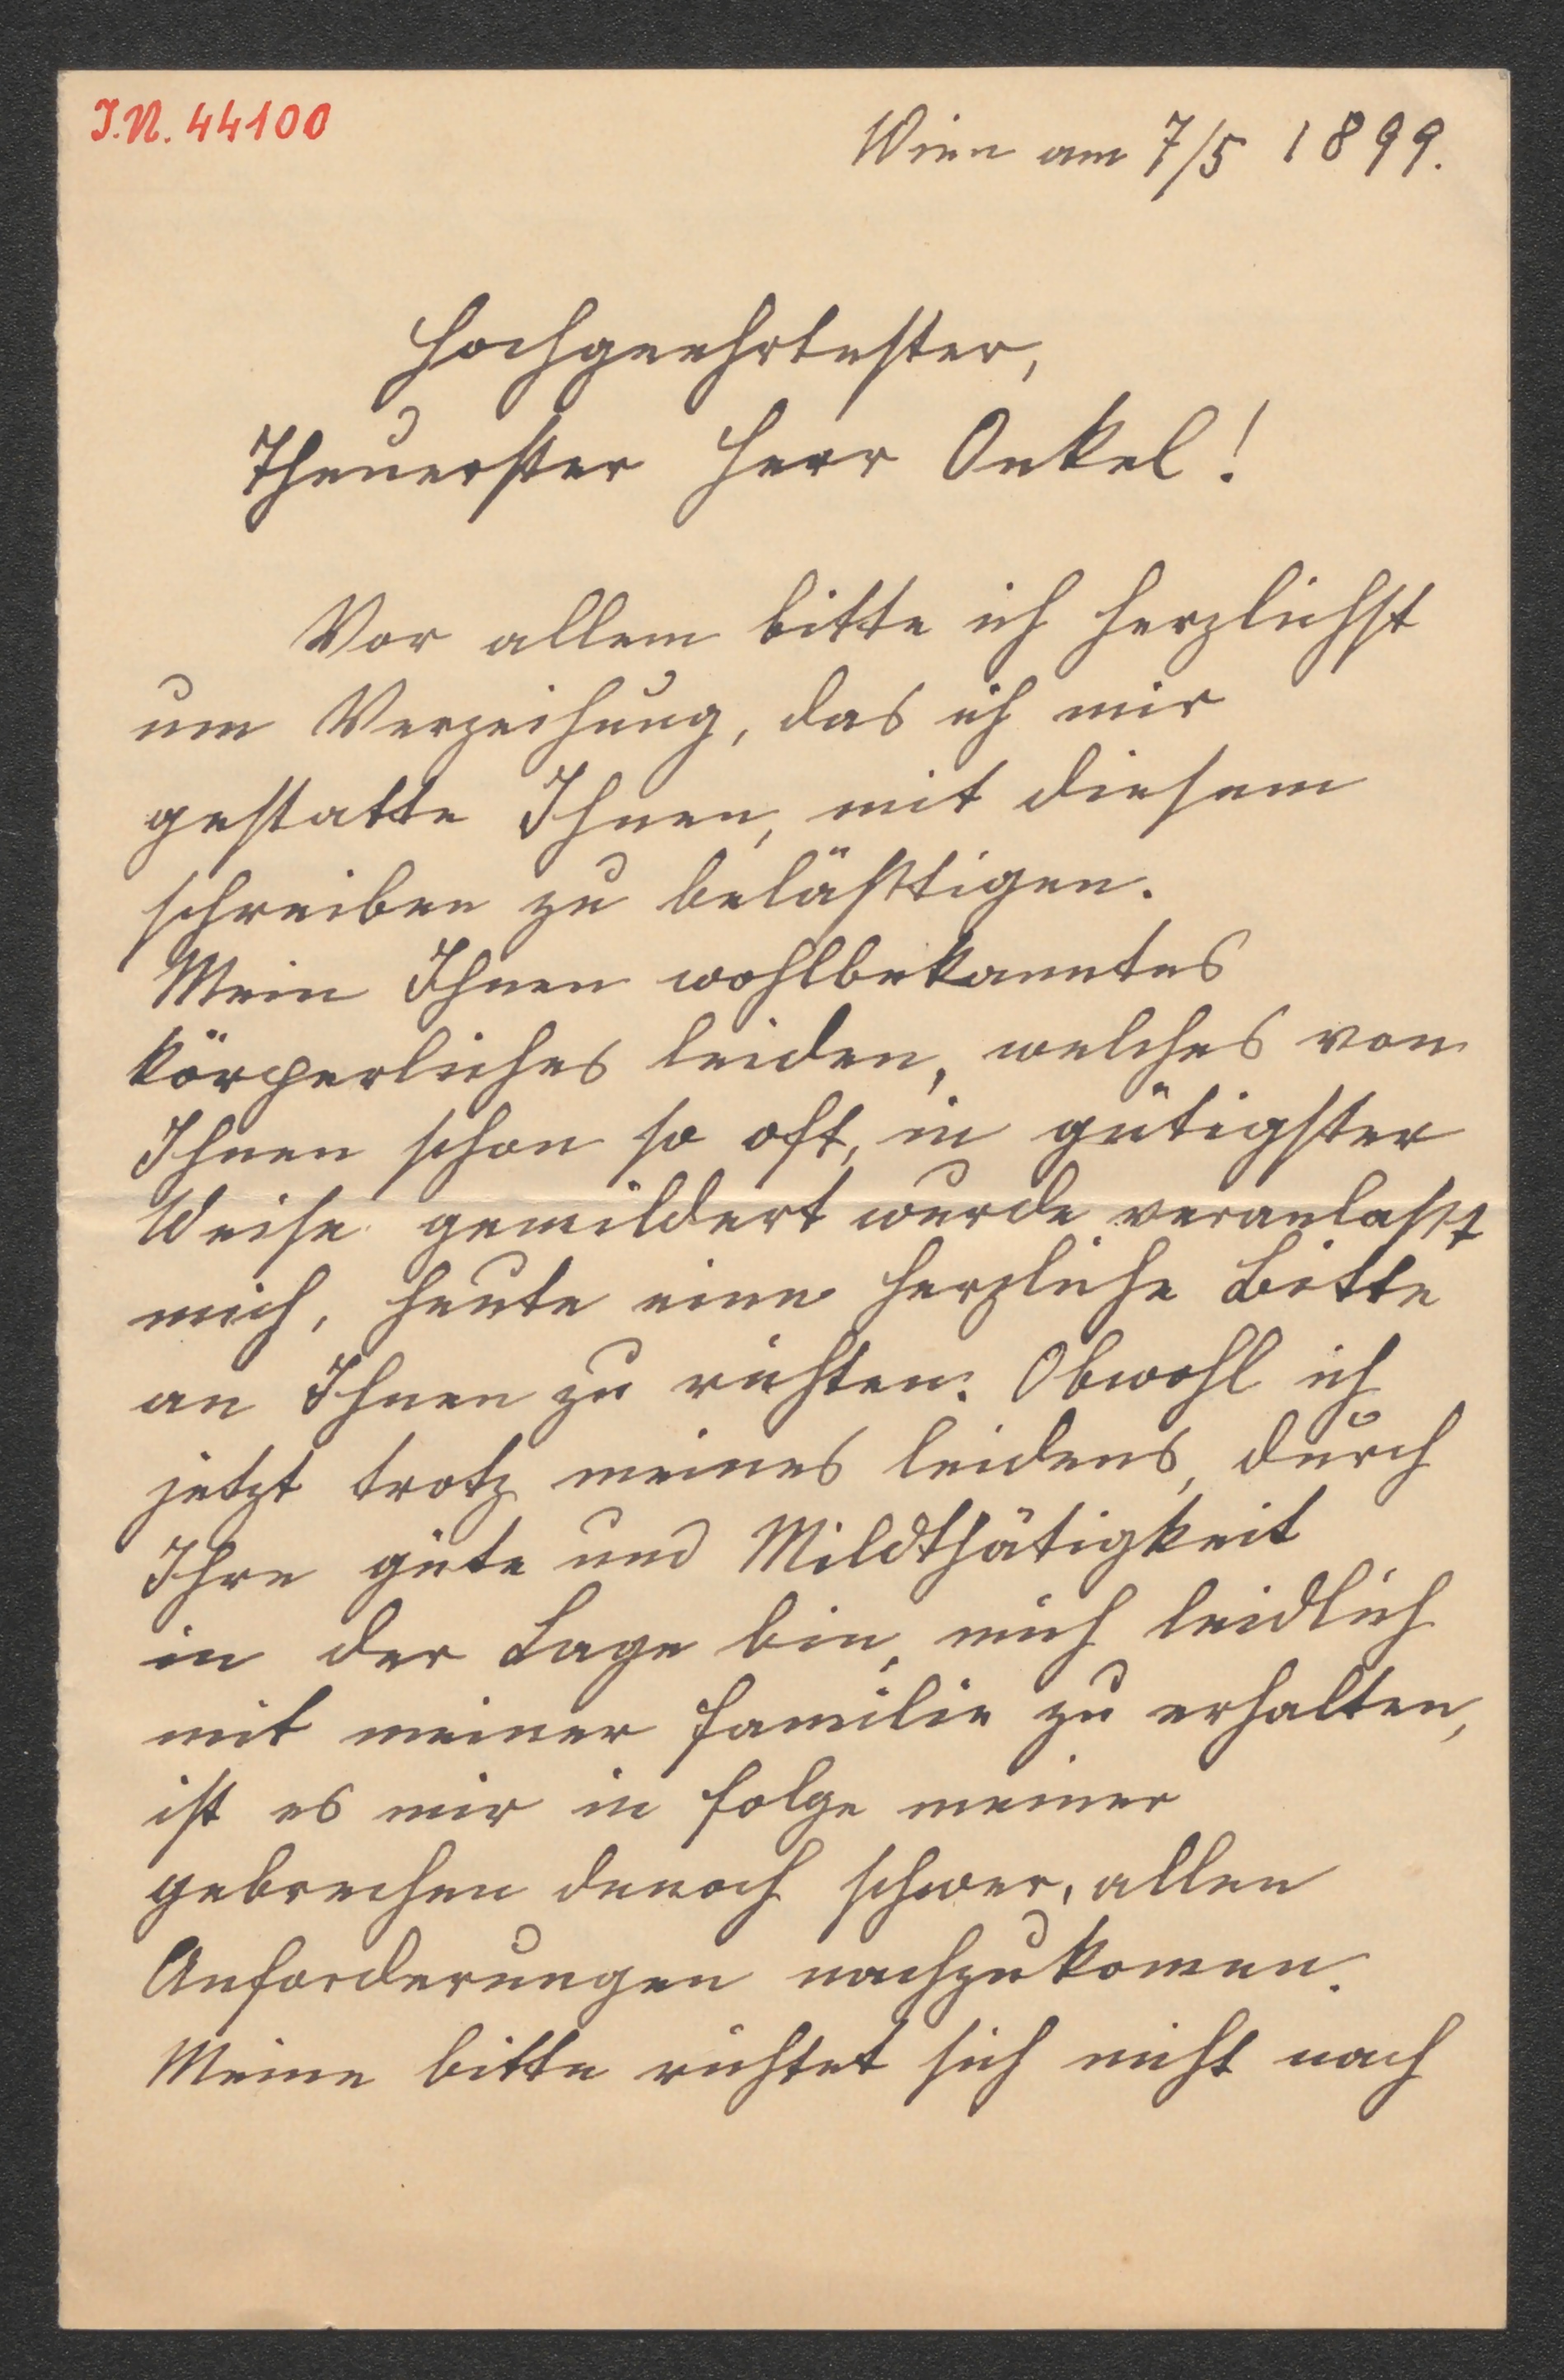 I.N. 44100
Wien am 7/5 1899.
Hochgeehrtester,
Theuerster Herr Onkel!
Vor allem bitte ich herzlichst
um Verzeihung, das ich mir
gestatte Ihnen, mit diesem
schreiben zu beläßtigen.
Mein Ihnen wohlbekanntes
körperliches leiden, welches von
Ihnen schon so oft, in gütigster
Weise gemildert wurde veranlaßt
mich, heute eine herzliche Bitte
an Ihnen zu richten. Obwohl ich
jetzt trotz meines leidens, durch
Ihre güte und Mildthätigkeit
in der Lage bin, mich leidlich
mit meiner familie zu erhalten,
ist es mir in folge meiner
gebrechen denoch schwer, allen
Anforderungen nachzukomen.
Meine bitte richtet sich nicht nach